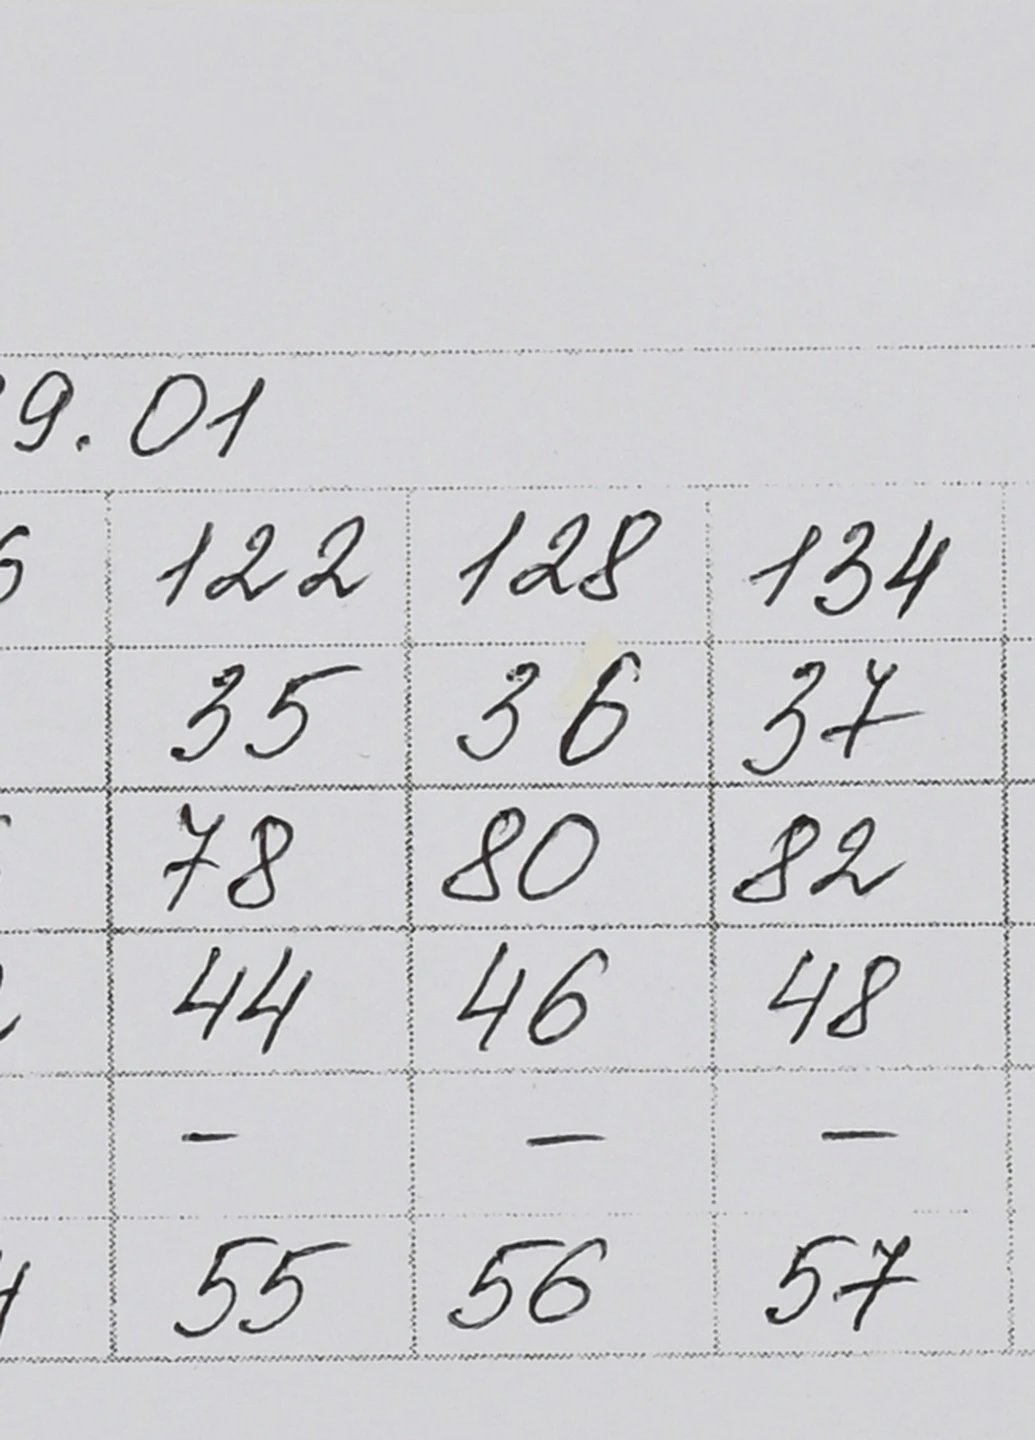 9.01
122 128 134
35 36 37
78 80 82
44 46 48
— — —
55 56 57